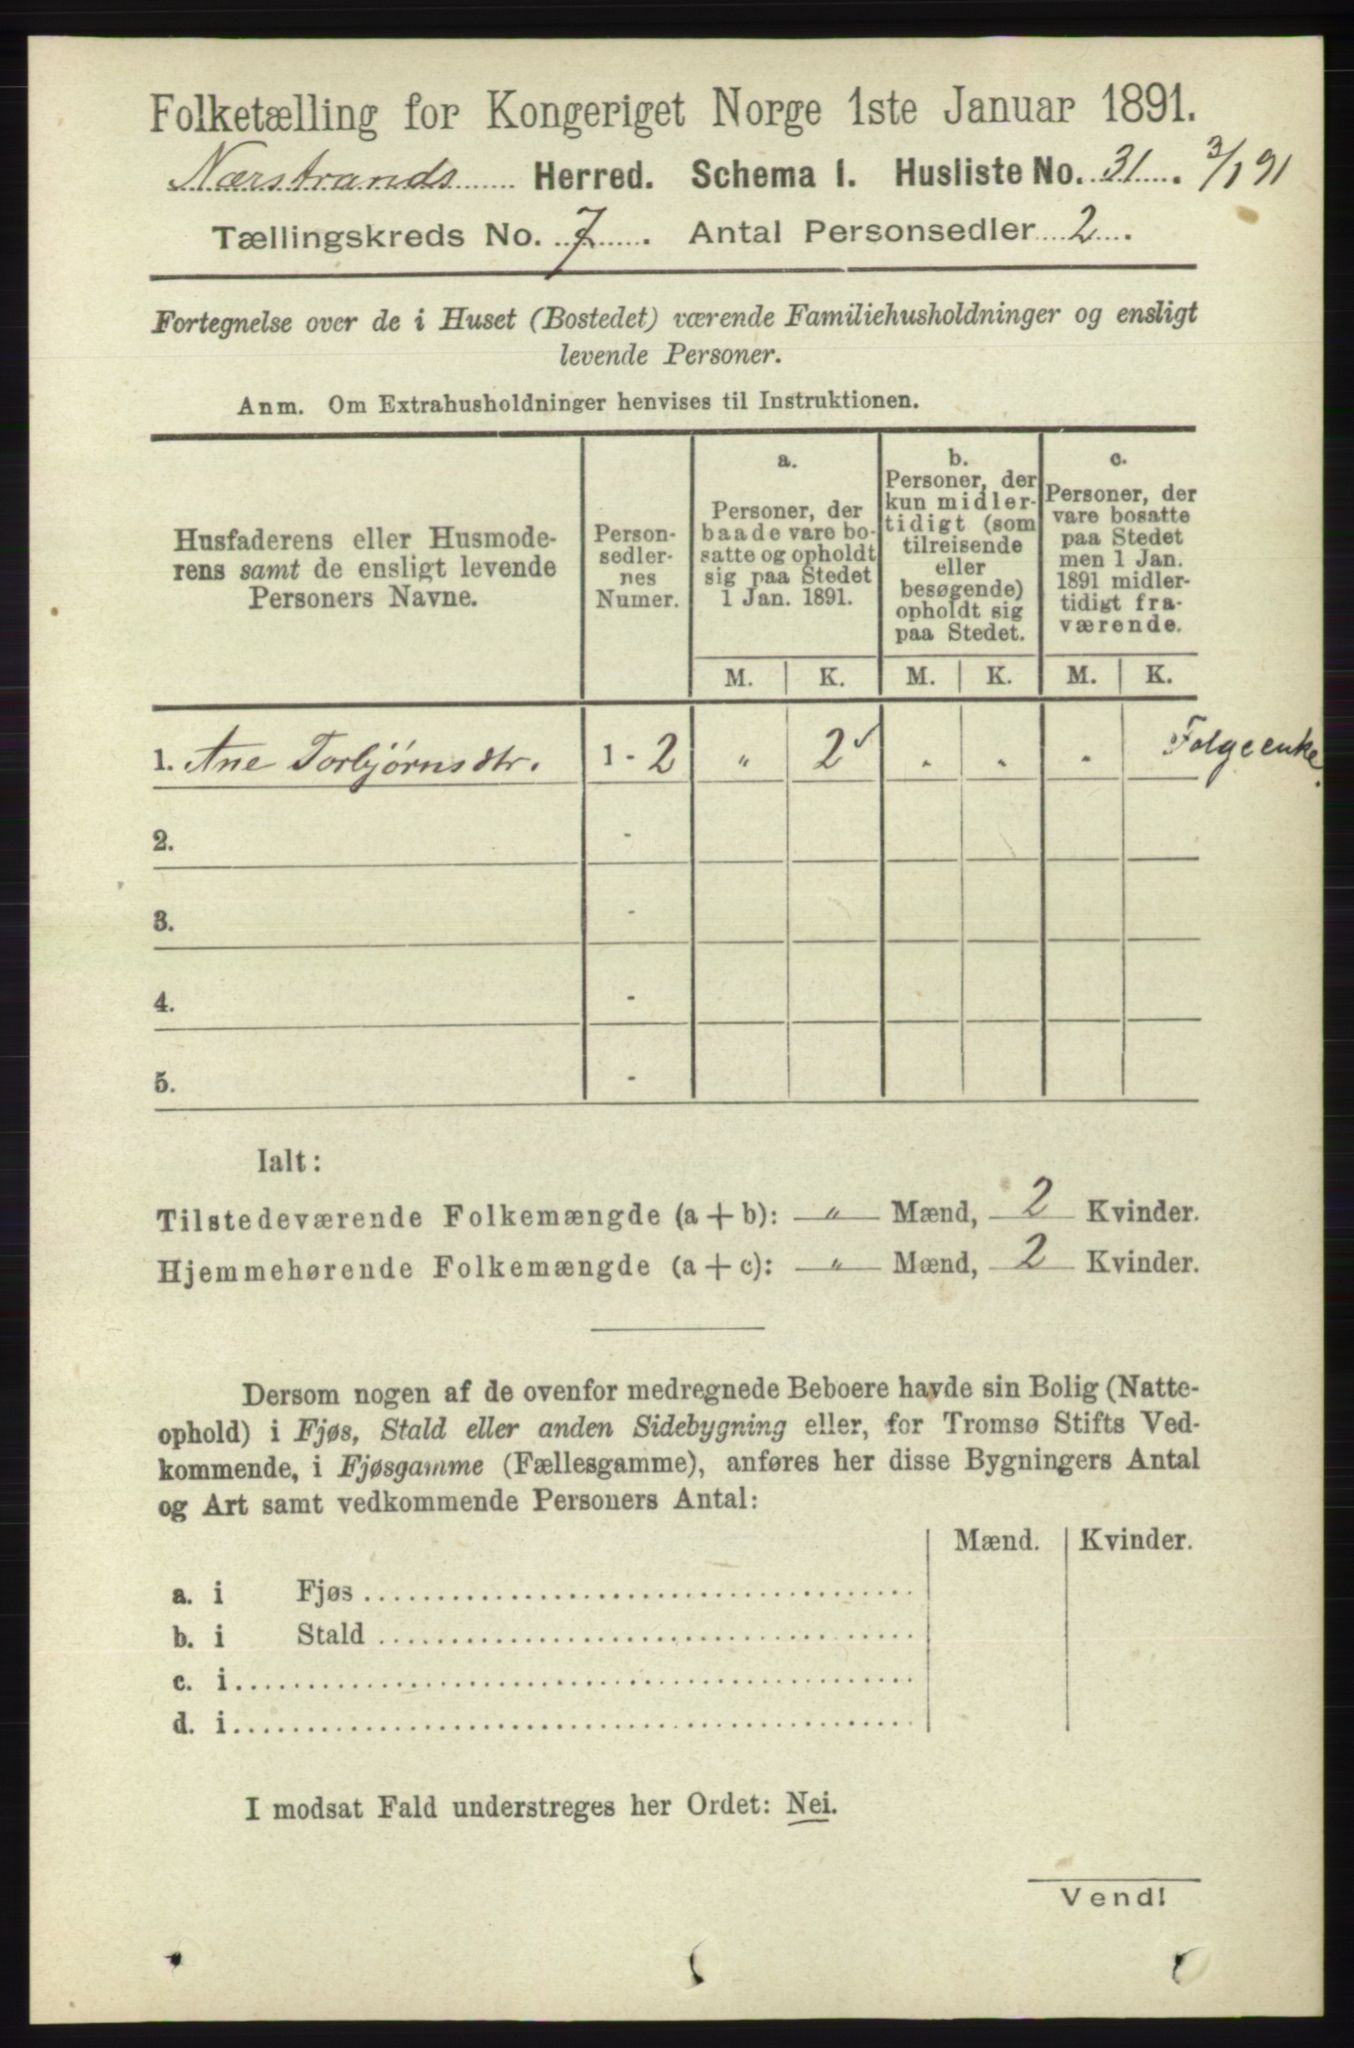 Folketælling for Kongeriget Norge 1ste Januar 1891.
Nærstrands Herred. Schema I. Husliste No. 31. 3/1 91
Tællingskreds No. 7. Antal Personsedler 2.
Fortegnelse over de i Huset (Bostedet) værende Familiehusholdninger og ensligt
levende Personer.
Anm. Om Extrahusholdninger henvises til Instruktionen.
Husfaderens eller Husmode-
rens samt de ensligt levende
Personers Navne.
Person-
sedler-
nes
Numer.
a.
Personer, der
baade vare bo-
satte og opholdt
sig paa Stedet
1 Jan. 1891.
b.
Personer, der
kun midler-
tidigt (som
tilreisende
eller
besøgende)
opholdt sig
paa Stedet.
c.
Personer, der
vare bosatte
paa Stedet
men 1 Jan.
1891 midler-
tidigt fra-
værende.
M. K. M. K. M. K.
1. Ane Torbjørnsdtr. 1 - 2 " 2 " " " Folgeenke.
2. -
3. -
4. -
5. -
Ialt:
Tilstedeværende Folkemængde (a + b): " Mænd, 2 Kvinder.
Hjemmehørende Folkemængde (a + c): " Mænd, 2 Kvinder.
Dersom nogen af de ovenfor medregnede Beboere havde sin Bolig (Natte-
ophold) i Fjøs, Stald eller anden Sidebygning eller, for Tromsø Stifts Ved-
kommende, i Fjøsgamme (Fællesgamme), anføres her disse Bygningers Antal
og Art samt vedkommende Personers Antal:
Mænd. Kvinder.
a. i Fjøs
b. i Stald
c. i
d. i
I modsat Fald understreges her Ordet: Nei.
Vend!